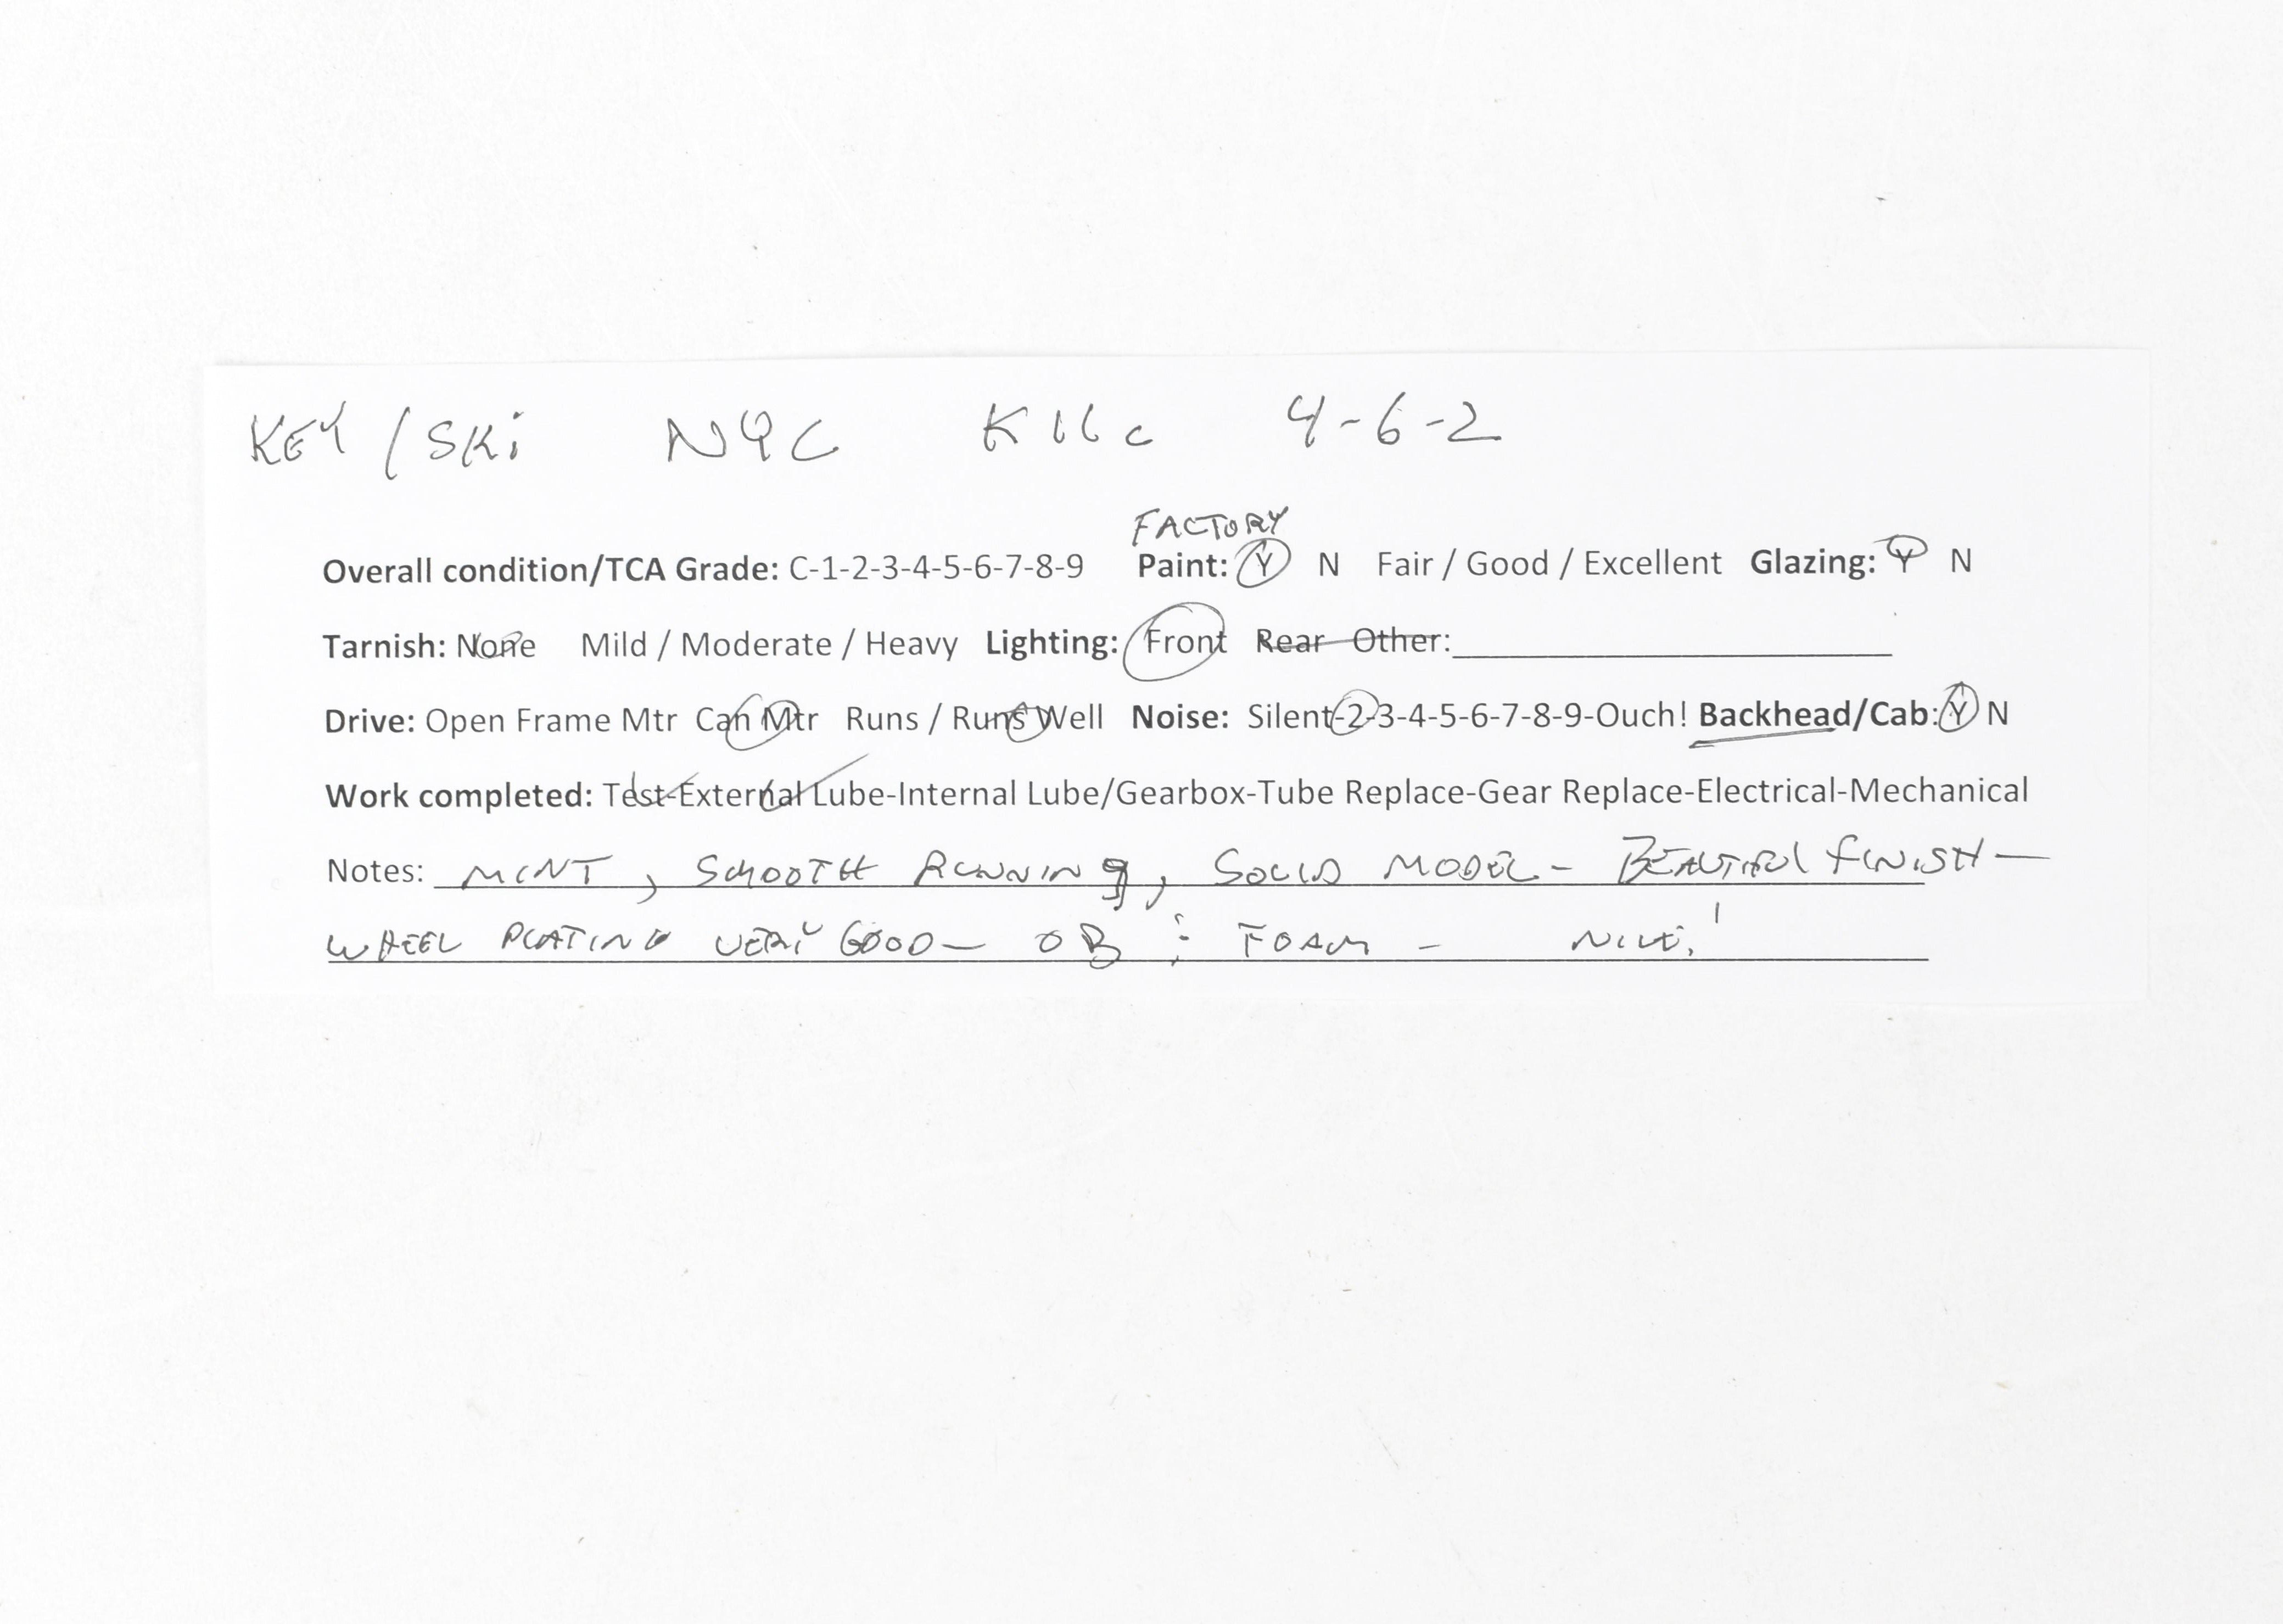 KEY / SKi NYC K11c 4-6-2
FACTORY
Overall condition/TCA Grade: C-1-2-3-4-5-6-7-8-9 Paint: Y N Fair / Good / Excellent Glazing: Y N
Tarnish: None Mild / Moderate / Heavy Lighting: Front Rear Other:
Drive: Open Frame Mtr Can Mtr Runs / Runs Well Noise: Silent-2-3-4-5-6-7-8-9-Ouch! Backhead/Cab: Y N
Work completed: Test-External Lube-Internal Lube/Gearbox-Tube Replace-Gear Replace-Electrical-Mechanical
Notes: MINT, SMOOTH RUNNING, SOLID MODEL - BEAUTIFUL FINISH -
WHEEL PLATING VERY GOOD - OB : FOAM - NICE!